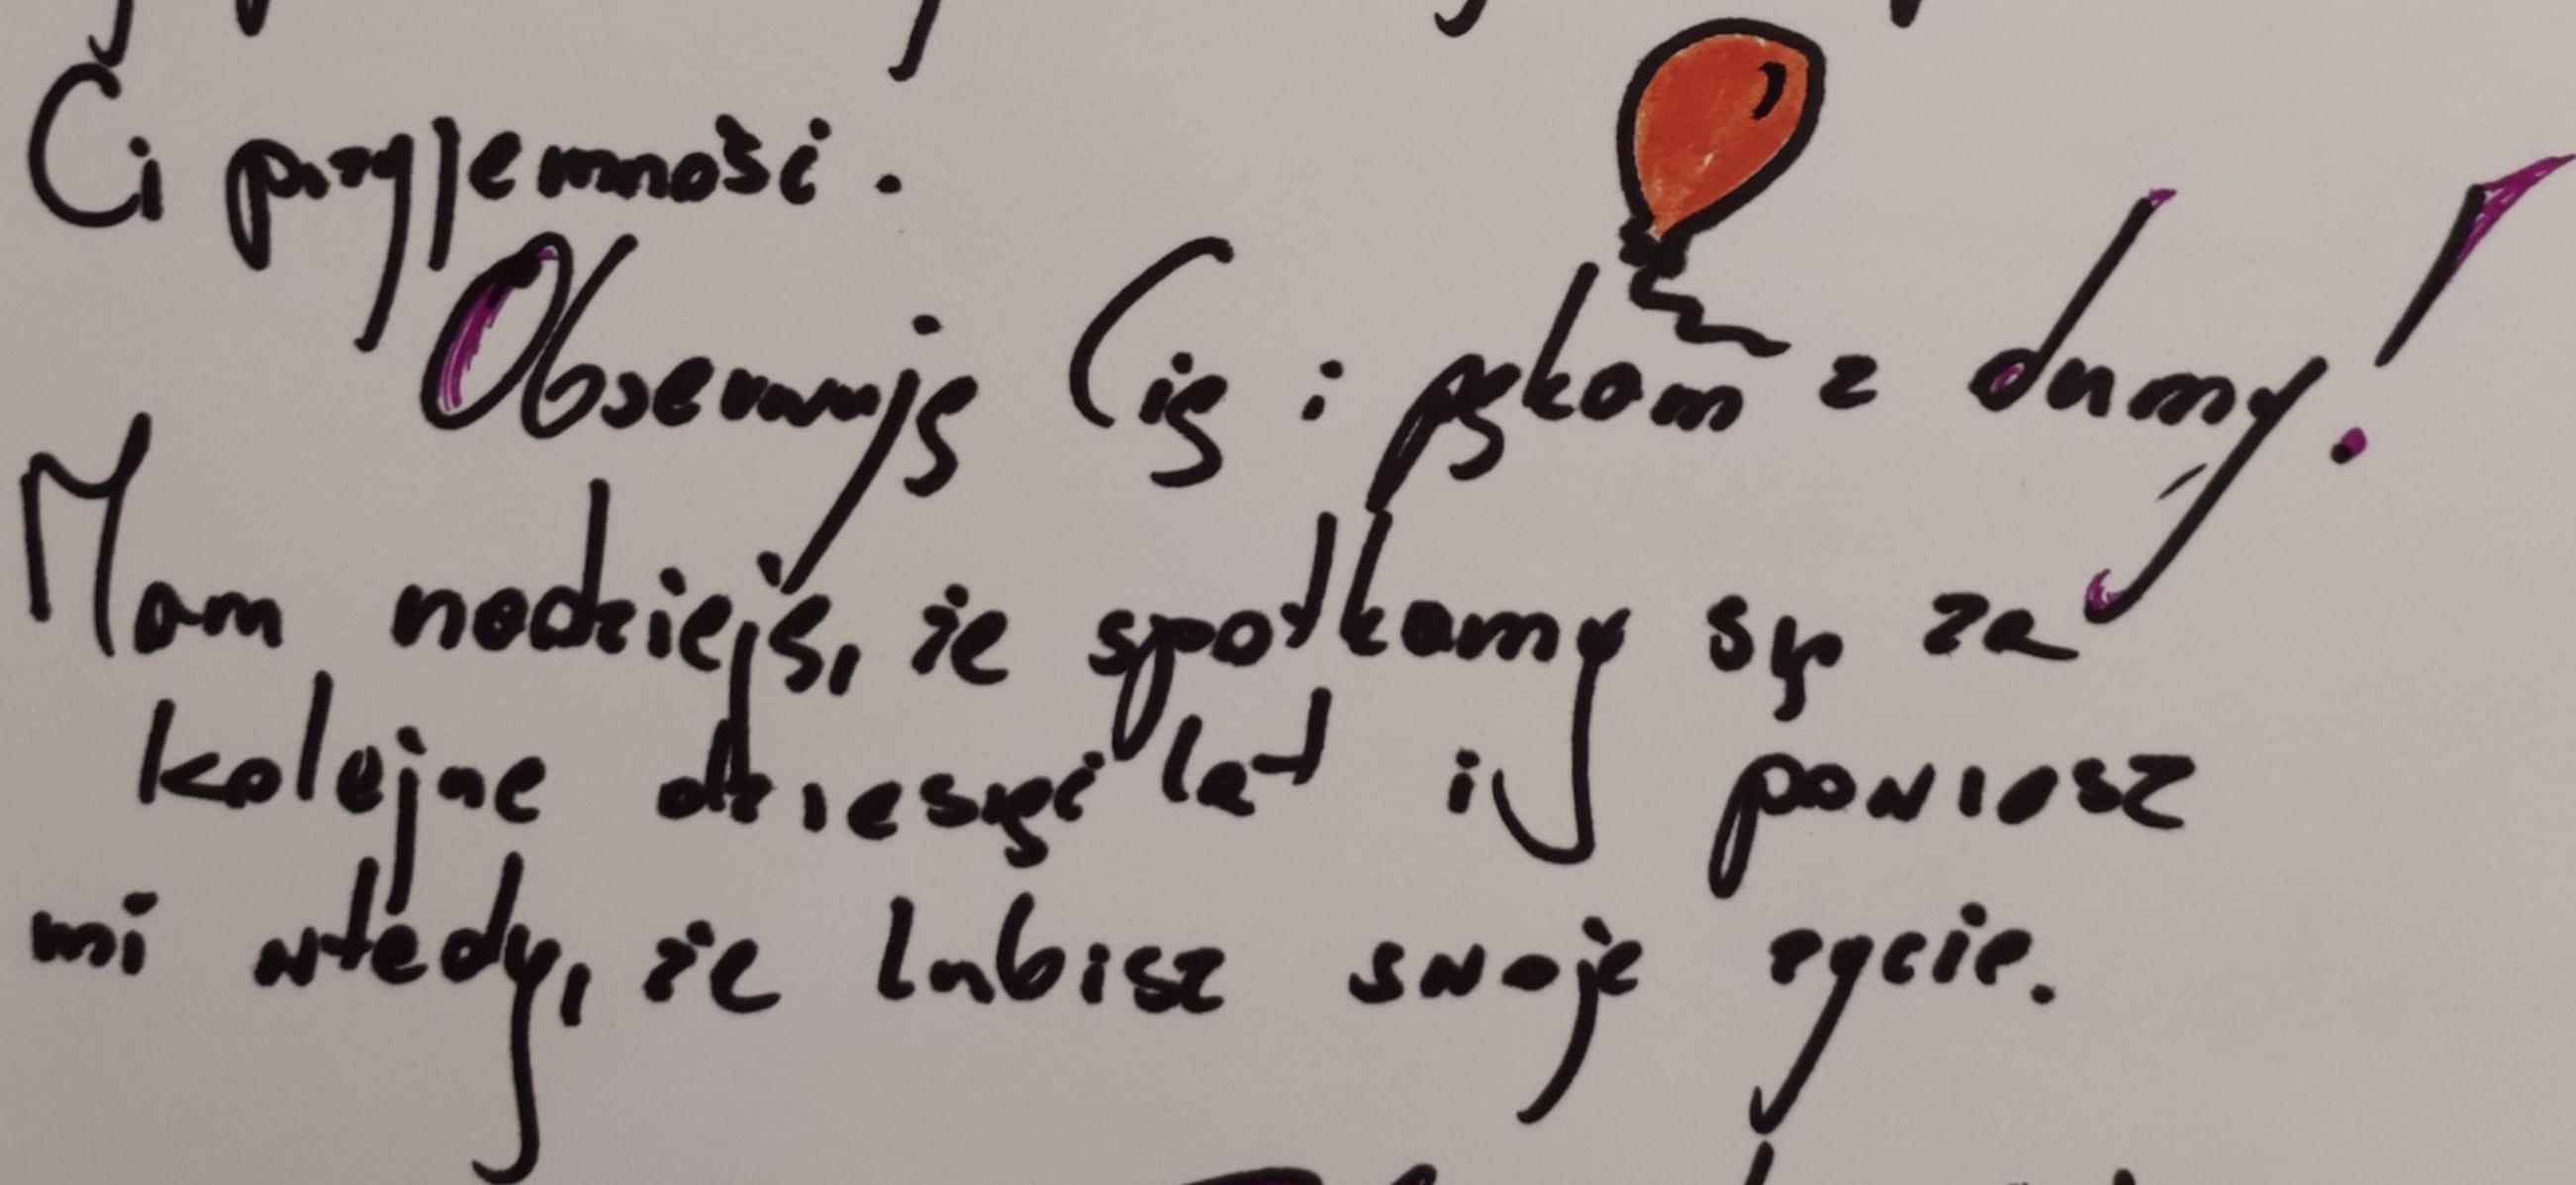 Ci przyjemność.
Obserwuję Cię i pękam z dumy!
Mam nadzieję, że spotkamy się za
kolejne dziesięć lat i powiesz
mi wtedy, że lubisz swoje życie.